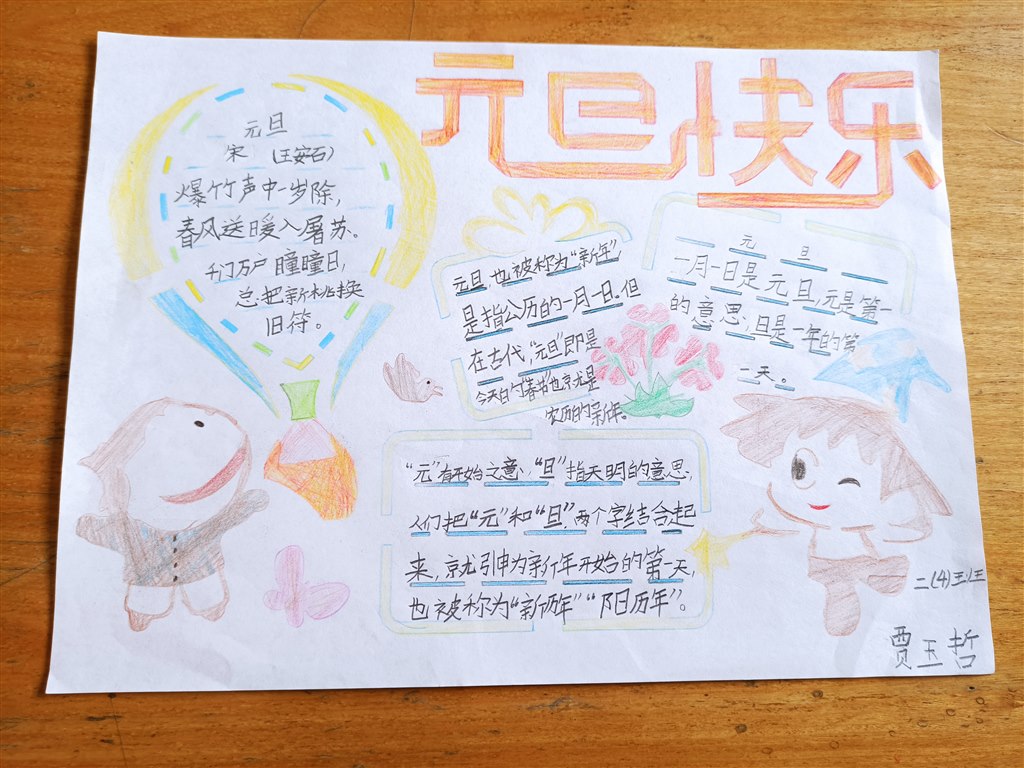 元旦快乐
元旦
宋 (王安石)
爆竹声中一岁除,
春风送暖入屠苏。
千门万户瞳瞳日,
总把新桃换
旧符。
元旦也被称为“新年”,
是指公历的一月一日.但
在古代,“元旦”即是
今天的“春节”也就是
农历的新年。
元 旦
一月一日是元旦,元是第一
的意思,旦是一年的第
一天。
“元”有开始之意,“旦”指天明的意思,
人们把“元”和“旦”两个字结合起
来,就引申为新年开始的第一天,
也被称为“新历年”“阳历年”。
二(4)班
贾玉哲